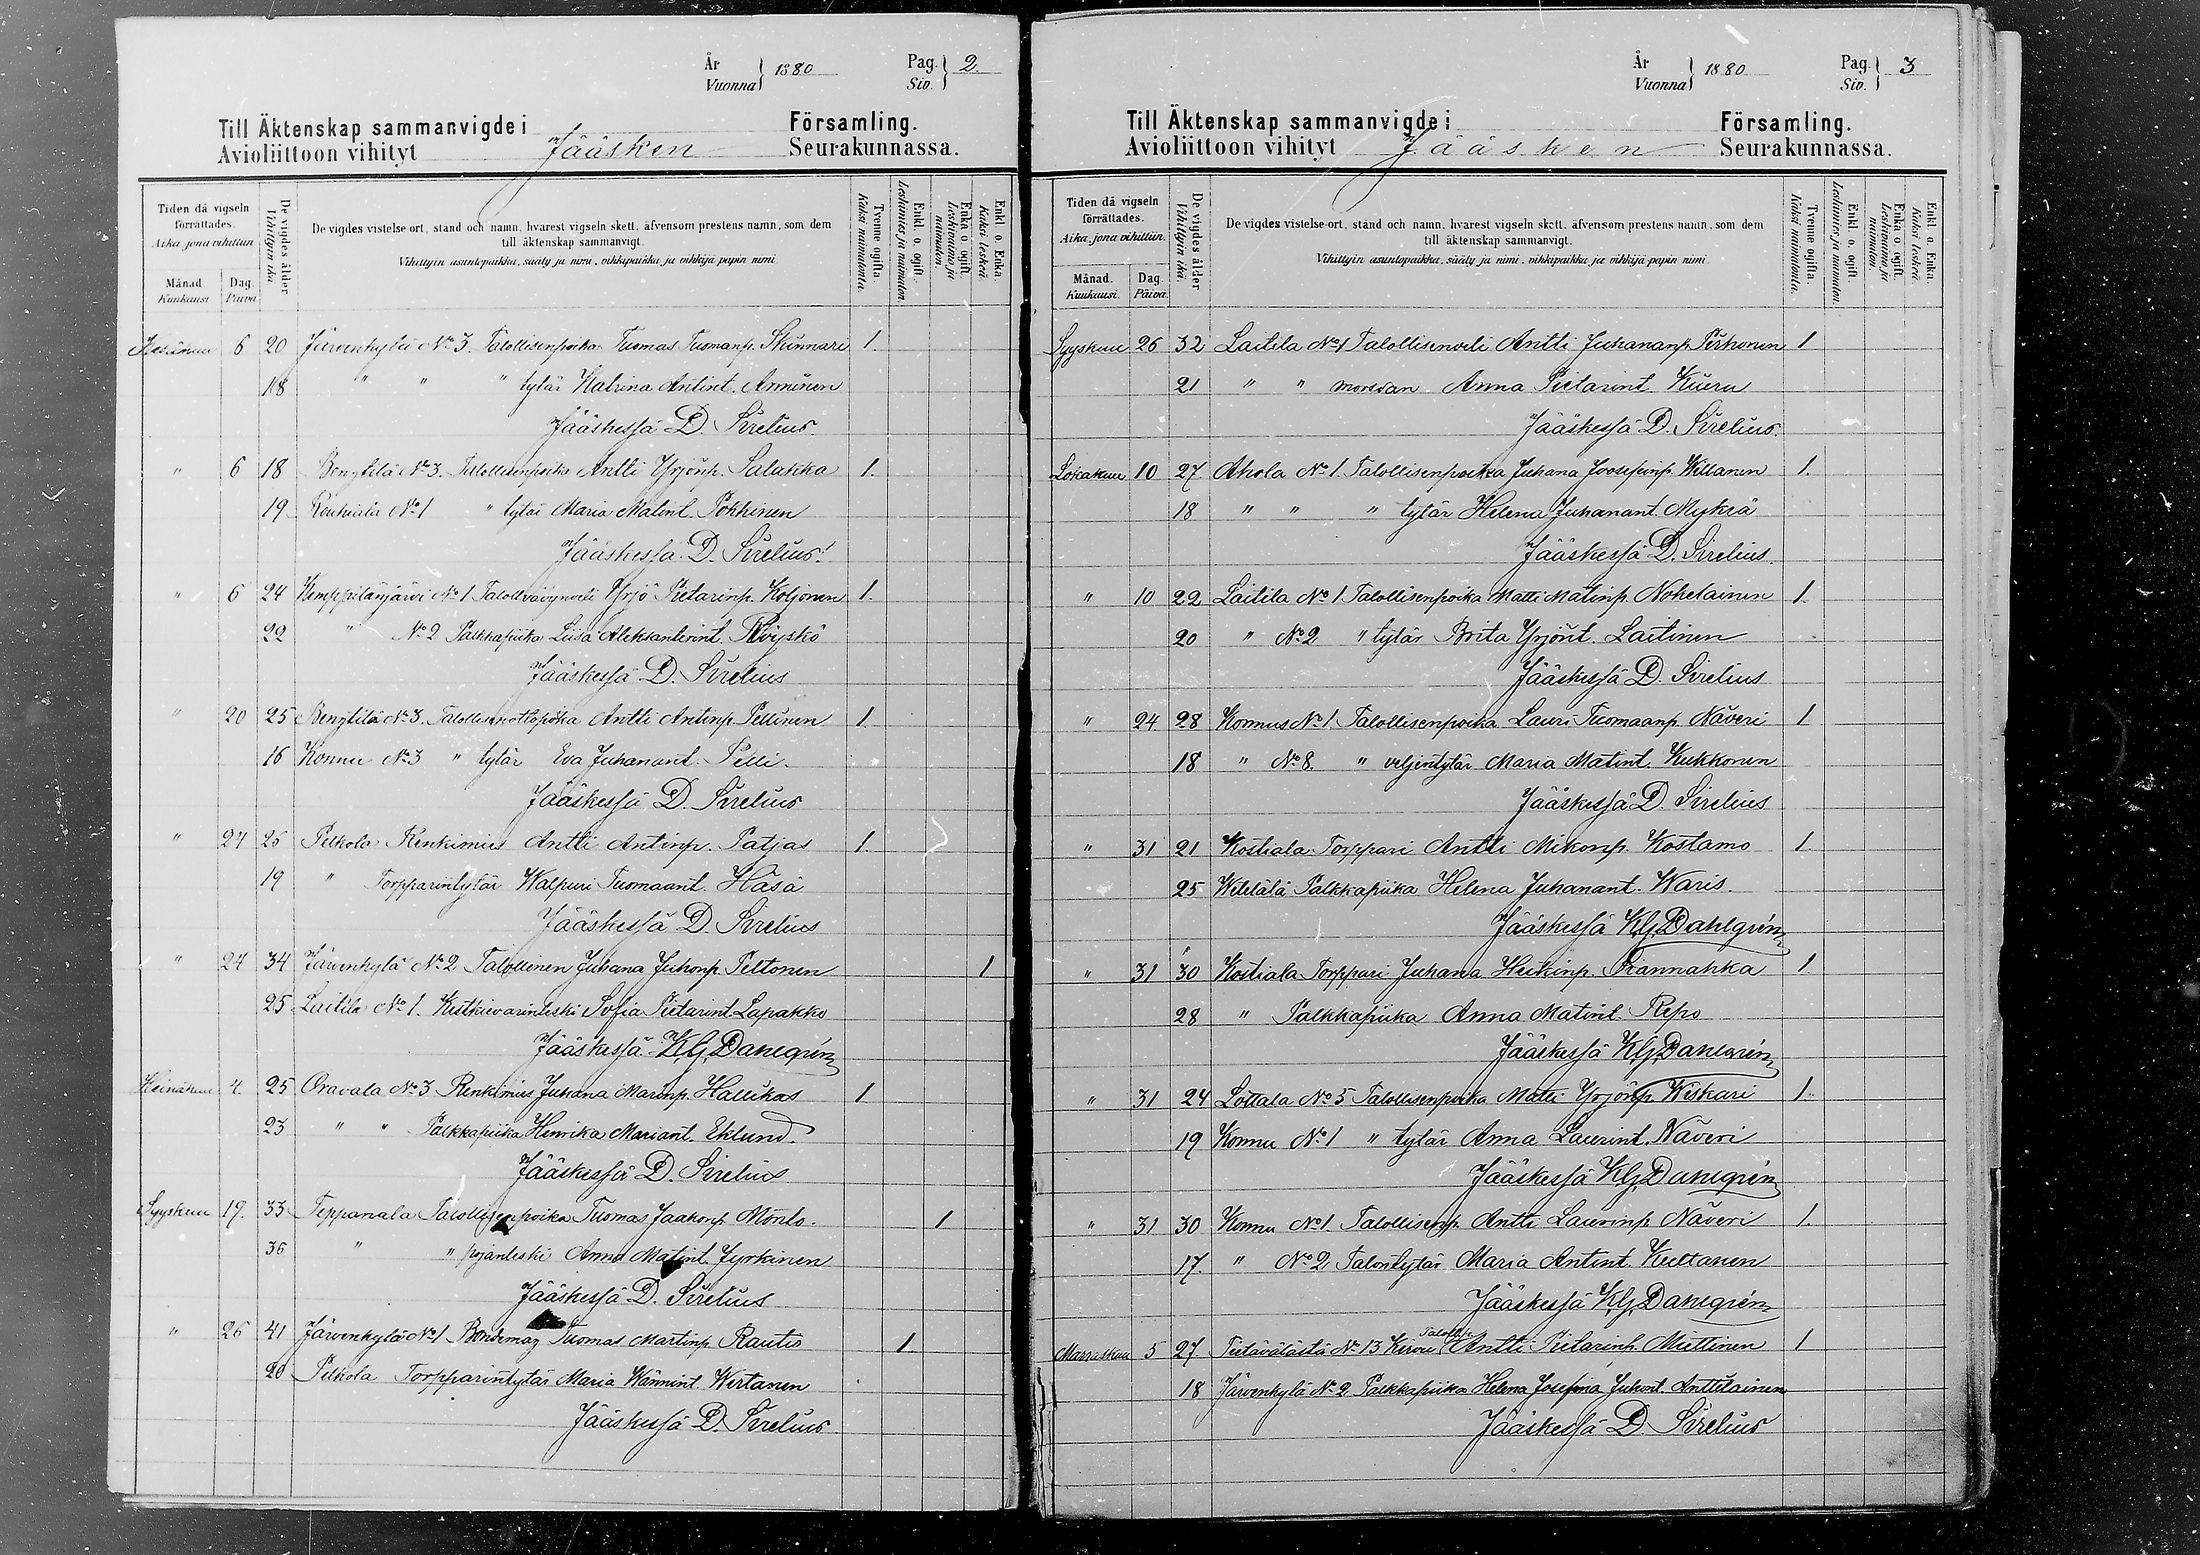 År
Vuonna } 1880 Pag. Siv. } 2.
Till Äktenskap sammanvigde i Församling.
Avioliittoon vihityt Jääsken Seurakunnassa.
Tiden då vigseln förrättades.
Aika, jona vihittiin
Månad. Kuukausi
Dag. Päivä
De vigdes ålder
Vihittyin ikä
De vigdes vistelse ort, stånd och namn, hvarest vigseln skett, äfvensom prestens namn, som dem
till äktenskap sammanvigt.
Vihittyin asuntopaikka, sääty ja nimi, vihkipaikka ja vihkijä papin nimi
Tvenne ogifta. Kaksi naimatonta.
Enkl. o. ogift. Leskimies ja naimaton.
Enka o. ogift. Leskivaimo ja naimaton.
Enkl. o. Enka. Kaksi leskeä.
Kesäkuu 6 20 Järvenkylä No 3. Talollisenpoika Tuomas Tuomanp. Skinnari 1.
18 " " " tytär Katrina Antint. Arminen
Jääskessä D. Sirelius.
" 6 18 Bengtilä No 3. Talollisenpoika Antti Yrjönp. Salakka 1.
19 No 1 " tytär Maria Matint. Pökkinen
Jääskessä D. Sirelius.
" 6 24 Kemppilänjärvi No 1 Yrjö Pietarinp. Koljonen 1.
22 " No 2 Palkkapiika Liisa Aleksanterint.
Jääskessä D. Sirelius
" 20 25 Bengtilä No 3. Antti Antinp. Pellinen 1.
16 Konnu No 3 " tytär Eva Juhanant. Pelli.
Jääskessä D. Sirelius
" 24 26 Pelkola Renkimies Antti Antinp. Patjas 1.
19 " Torpparintytär Walpuri Tuomaant. Häsä
Jääskessä D. Sirelius
" 24 34 Järvenkylä No 2 Talollinen Juhana Juhonp. Peltonen 1
25 Laitila No 1. Kestkievarinleski Sofia Pietarint. Lapakko
Jääskessä K.G. Dahlgrén
Heinäkuu 4. 25 Oravala No 3 Renkimies Juhana Marinp. Hallikas 1
23 " " Palkkapiika Henrika Mariant. Eklund.
Jääskessä D. Sirelius
Syyskuu 19. 33 Teppanala Talollisenpoika Tuomas Jaakonp. Mönto. 1
36 " " pojanleski Anna Matint. Jyrkinen
Jääskessä D. Sirelius
" 26 41 Järvenkylä No 1 Tuomas Martinp. Rautio 1.
20 Pelkola Torpparintytär Maria Wertanen
Jääskessä D. Sirelius.
År
Vuonna } 1880 Pag. Siv. } 3
Till Äktenskap sammanvigde i Församling.
Avioliittoon vihityt Jääsken Seurakunnassa.
Tiden då vigseln förrättades.
Aika, jona vihittiin.
Månad. Kuukausi.
Dag. Päivä.
De vigdes ålder
Vihittyin ikä.
De vigdes vistelse-ort, stånd och namn, hvarest vigseln skett, äfvensom prestens namn, som dem
till äktenskap sammanvigt.
Vihittyin asuntopaikka, sääty ja nimi, vihkipaikka ja vihkijä papin nimi
Tvenne ogifta. Kaksi naimatonta.
Enkl. o. ogift. Leskimies ja naimaton.
Enka o. ogift. Leskivaimo ja naimaton.
Enkl. o. Enka. Kaksi leskeä.
Syyskuu 26 32 Laitila No 1 Talollisenveli Antti Juhananp. Pirhonen 1
21 " " morsian Anna Pietarint. Kiieru
Jääskessä D. Sirelius.
Lokakuu 10 27. Ahola No 1. Talollisenpoika Juhana Joosepinp. Killanen 1.
18 " " " tytär Helena Juhanant. Mykrä
Jääskessä D. Sirelius.
" 10 22 Laitila No 1. Talollisenpoika Matti Matinp. Nokelainen 1.
20 " No 2 " tytär Brita Yrjönt. Laitinen
Jääskessä D. Sirelius
" 24 28 Konnus No 1. Talollisenpoika Lauri Tuomaanp. Näveri 1
18 " No 8. " veljentytär Maria Matint. Kukkonen
Jääskessä D. Sirelius
" 31 21 Kostiala Torppari Antti Mikonp. Kostamo 1.
25 Palkkapiika Helena Juhanant. Waris.
Jääskessä K.G. Dahlgrén
" 31 30 Kostiala Torppari Juhana Heikinp. 1.
28 " Palkkapiika Anna Matint. Repo
Jääskessä K.G. Dahlgrén
" 31 24 Lottala No 5 Talollisenpoika Matti Yrjönp. Wiskari 1.
19 Konnu No 1 " tytär Anna Laurint. Näveri
Jääskessä K.G. Dahlgrén
" 31 30 Konnu No 1. Talollisenp. Antti Laurinp. Näveri 1.
17. " No 2. Talontytär Maria Antint. Kultanen
Jääskessä K.G. Dahlgrén
Marraskuu 5 27. No 13 Antti Pietarinp. Miettinen 1
18 Järvenkylä No 2 Palkkapiika Helena Josefina Juhont. Anttilainen
Jääskessä D. Sirelius